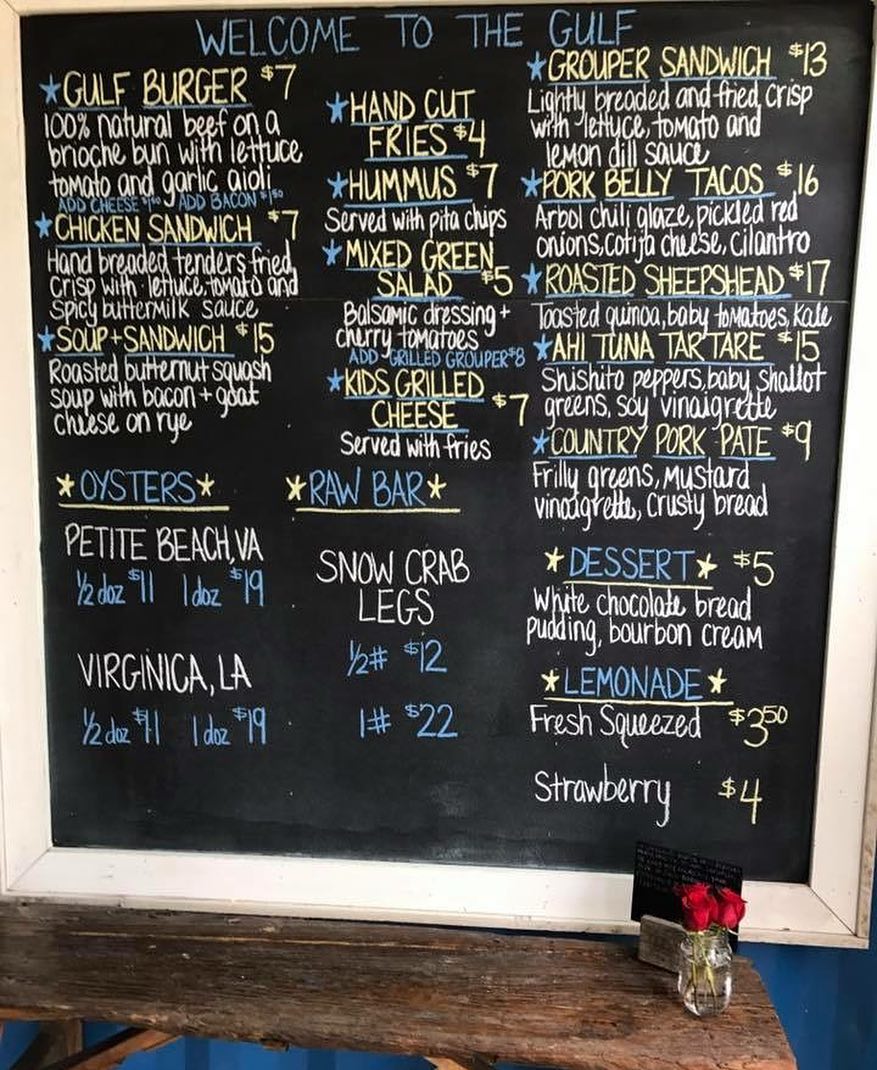 WELCOME TO THE GULF
GULF BURGER $7
100% natural beef on a
brioche bun with lettuce
tomato and garlic aioli
ADD CHEESE $1.50 ADD BACON $1.50
CHICKEN SANDWICH $7
Hand breaded tenders fried
crisp with lettuce, tomato and
spicy buttermilk sauce
SOUP + SANDWICH $15
Roasted butternut squash
soup with bacon + goat
cheese on rye
HAND CUT
FRIES $4
HUMMUS $7
Served with pita chips
MIXED GREEN
SALAD $5
Balsamic dressing +
cherry tomatoes
ADD GRILLED GROUPER $8
KIDS GRILLED
CHEESE $7
Served with fries
GROUPER SANDWICH $13
Lightly breaded and fried, crisp
with lettuce, tomato and
lemon dill sauce
PORK BELLY TACOS $16
Arbol chili glaze, pickled red
onions, cotija cheese, cilantro
ROASTED SHEEPSHEAD $17
Toasted quinoa, baby tomatoes, kale
AHI TUNA TARTARE $15
Shishito peppers, baby shallot
greens, soy vinaigrette
COUNTRY PORK PATE $9
Frilly greens, Mustard
vinaigrette, crusty bread
OYSTERS
PETITE BEACH, VA
½ doz $11 1 doz $19
VIRGINICA, LA
½ doz $11 1 doz $19
RAW BAR
SNOW CRAB
LEGS
½# $12
1# $22
DESSERT $5
White chocolate bread
pudding, bourbon cream
LEMONADE
Fresh Squeezed $3.50
Strawberry $4